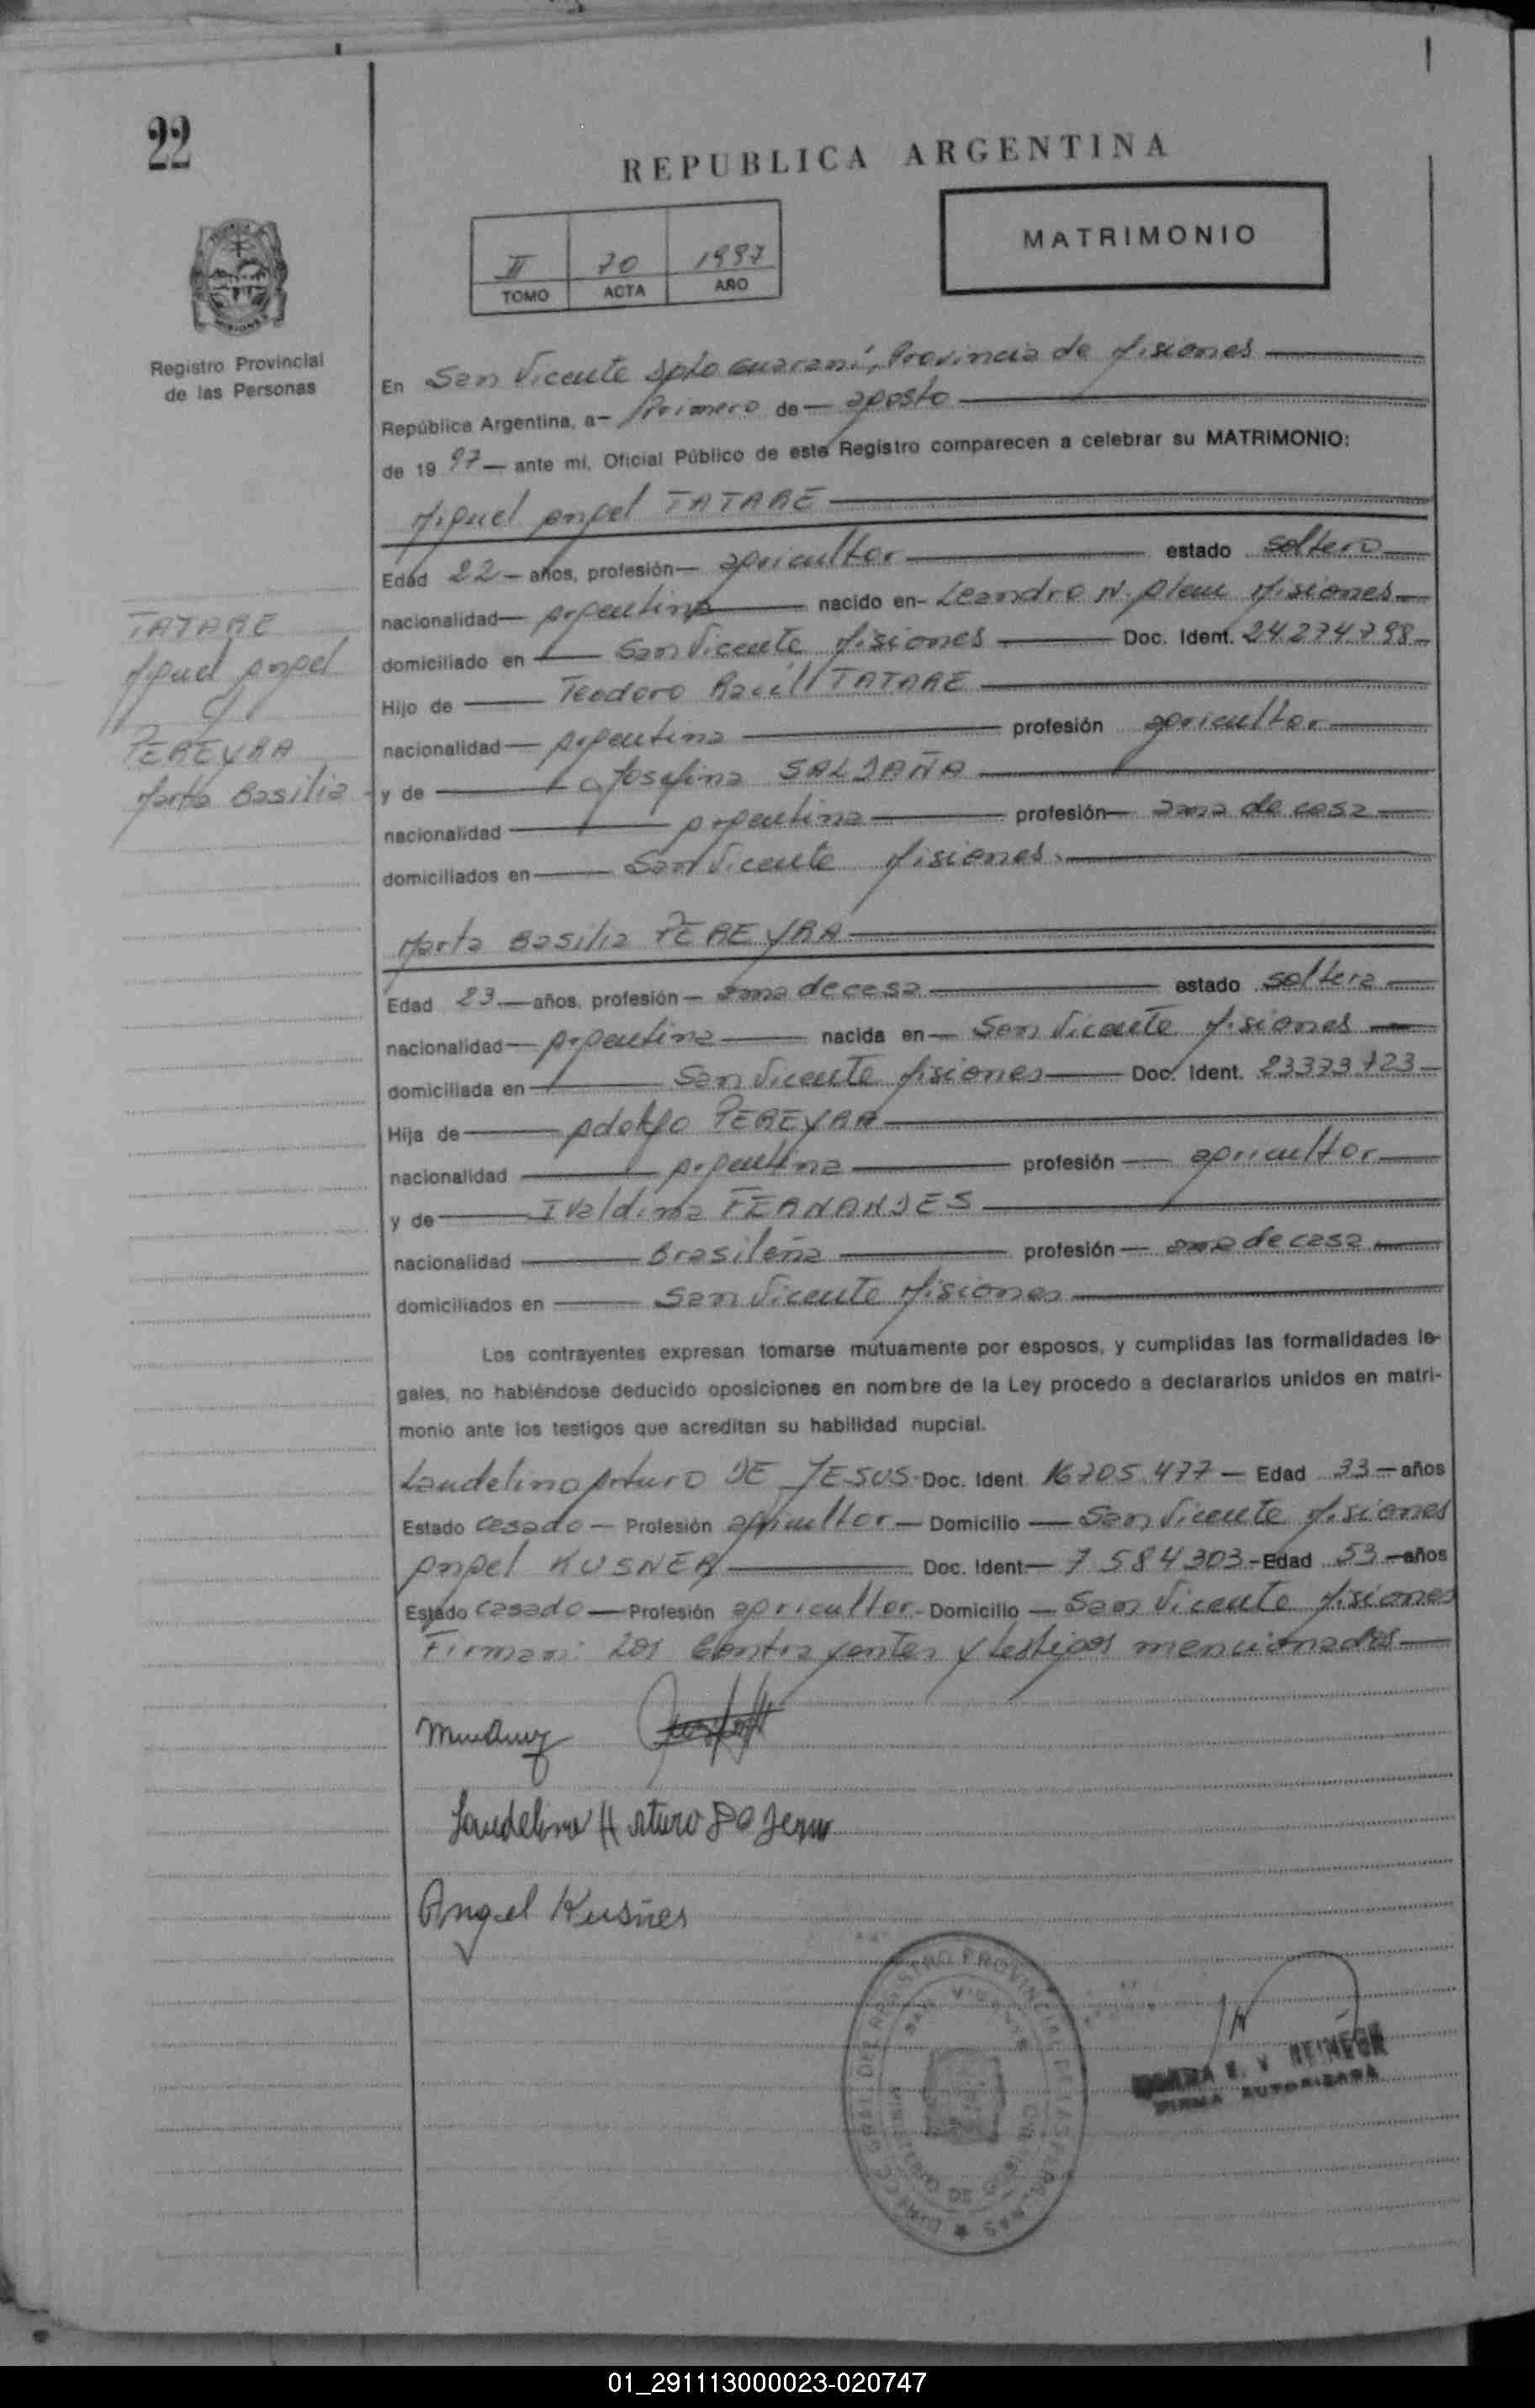 22
REPUBLICA ARGENTINA
MATRIMONIO
II 70 1997
TOMO ACTA AÑO
Registro Provincial
de las Personas
En San Vicente Dpto Guaraní, Provincia de Misiones
República Argentina, a Primero de agosto
de 1997 ante mí, Oficial Público de este Registro comparecen a celebrar su MATRIMONIO:
Miguel Angel TATARE
Edad 22 años, profesión agricultor estado soltero
nacionalidad Argentina nacido en Leandro N. Alem Misiones
domiciliado en San Vicente Misiones Doc. Ident. 24274798
Hijo de Teodoro Raúl TATARE
nacionalidad Argentina profesión agricultor
y de Josefina SALDAÑA
nacionalidad Argentina profesión ama de casa
domiciliados en San Vicente Misiones.
TATARE
Miguel Angel
c/
PEREYRA
Marta Basilia
Marta Basilia PEREYRA
Edad 23 años, profesión ama de casa estado soltera
nacionalidad Argentina nacida en San Vicente Misiones
domiciliada en San Vicente Misiones Doc. Ident. 23373723
Hija de Adolfo PEREYRA
nacionalidad Argentina profesión agricultor
y de Ivaldina FERNANDES
nacionalidad Brasileña profesión ama de casa
domiciliados en San Vicente Misiones
Los contrayentes expresan tomarse mútuamente por esposos, y cumplidas las formalidades le-
gales, no habiéndose deducido oposiciones en nombre de la Ley procedo a declararlos unidos en matri-
monio ante los testigos que acreditan su habilidad nupcial.
Laudelino Arturo DE JESUS Doc. Ident. 16705.477 Edad 33 años
Estado casado Profesión agricultor Domicilio San Vicente Misiones
Angel KUSNER Doc. Ident. 7584303 Edad 53 años
Estado casado Profesión agricultor Domicilio San Vicente Misiones
Firman: Los Contrayentes y testigos mencionados
Laudelino Arturo De Jesus
Angel Kusner
FIRMA AUTORIZADA
01_291113000023-020747